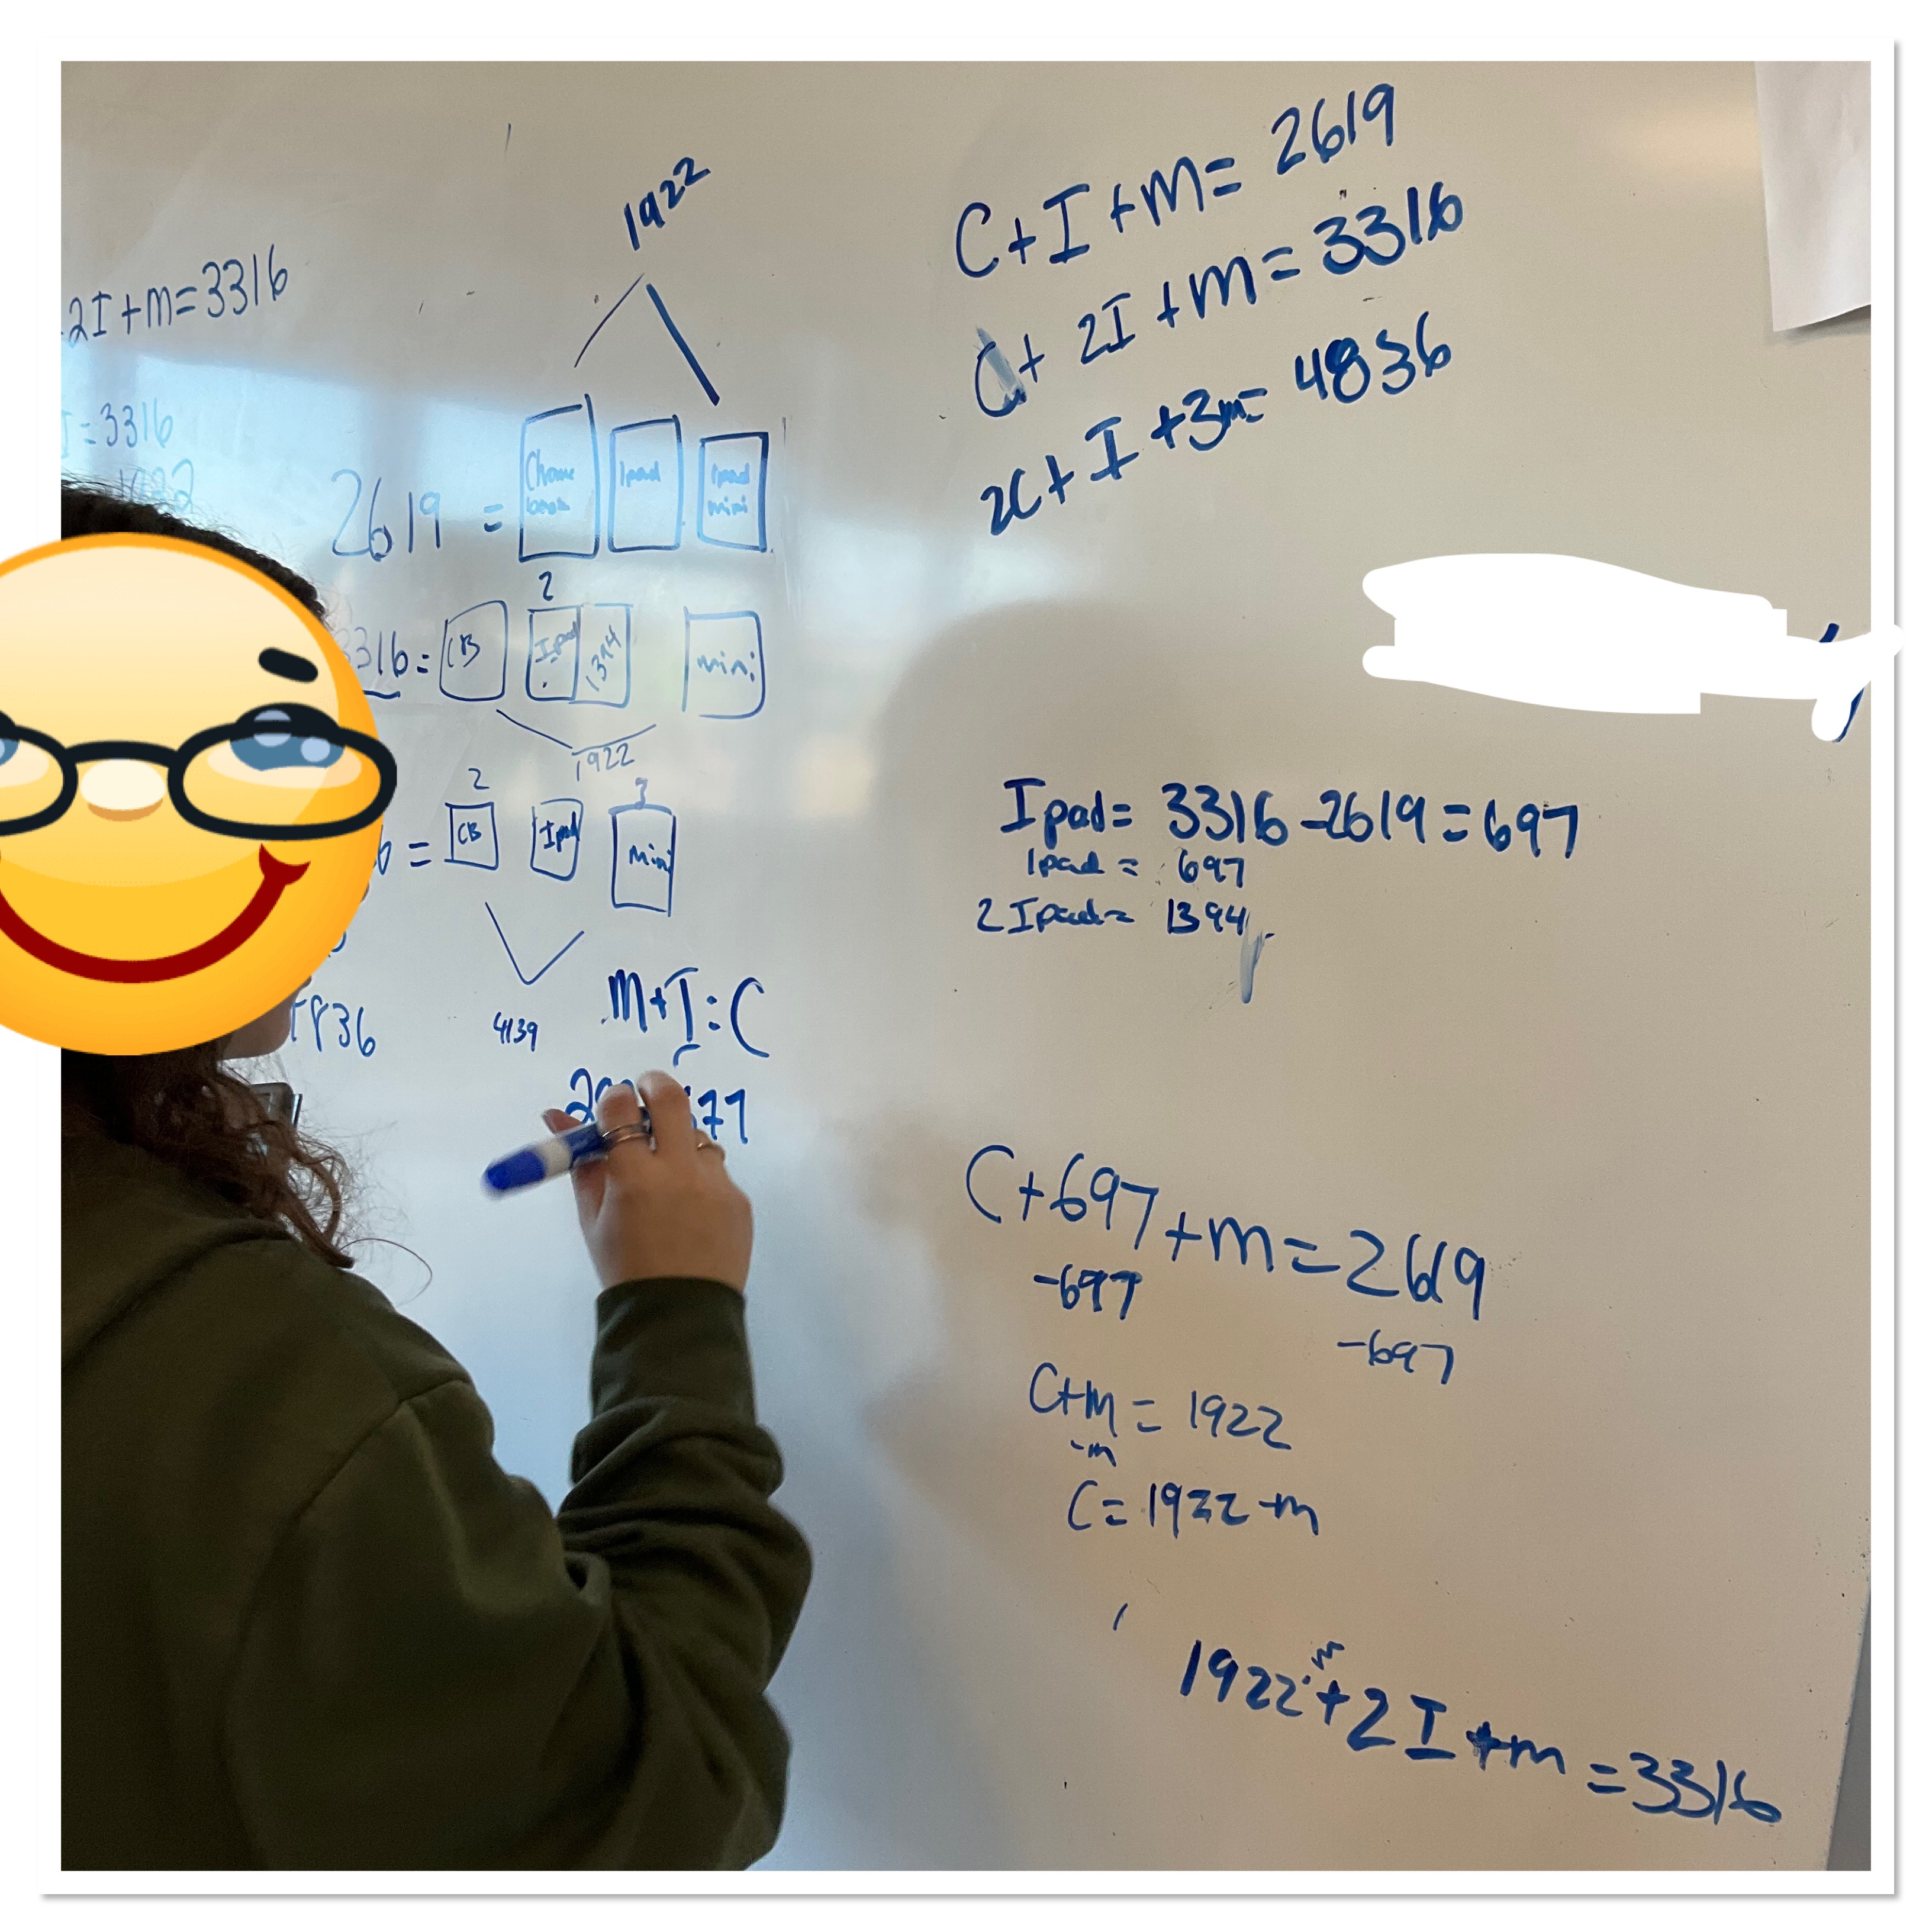 2I+m=3316
I=3316
1922
1922
2619 = Chrome book Ipad Ipad mini
2
3316= CB Ipad 1394 mini
1922
2 3
6 = CB Ipad mini
836 4139
m+I:C
C+I+m= 2619
C+ 2I+m= 3316
2C+I+3m= 4836
Ipad= 3316-2619=697
Ipad = 697
2Ipad= 1394
C+697+m=2619
-697 -697
C+m = 1922
-m
C= 1922-m
1922+2I+m=3316